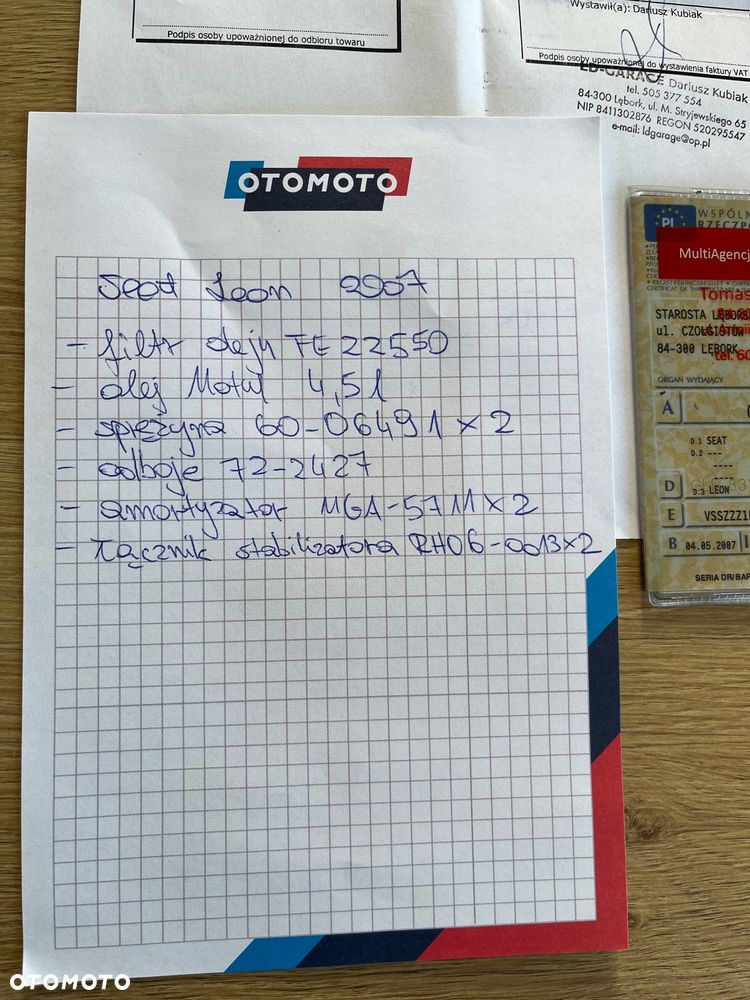 Podpis osoby upoważnionej do odbioru towaru
Wystawił(a): Dariusz Kubiak
Podpis osoby upoważnionej do wystawienia faktury VAT
LD-GARAGE Dariusz Kubiak
tel. 505 377 554
84-300 Lębork, ul. M. Stryjewskiego 65
NIP 8411302876 REGON 520295547
e-mail: ldgarage@op.pl
OTOMOTO
Seat Leon 2007
- filtr oleju FE 22550
- olej Motul 4,5l
- sprężyna 60-06491 x 2
- odboje 72-2427
- amortyzator MGA-5711 x 2
- Łącznik stabilizatora RH06-0013x2
PL
WSPÓLN
RZECZPO
MultiAgencj
Tomas
STAROSTA LĘBORS
ul. CZOŁGISTÓW
84-300 LĘBORK
tel. 60
ORGAN WYDAJĄCY
A
D.1 SEAT
D.2 ---
----
D
D.3 LEON
E VSSZZZ1
B 04.05.2007
SERIA DR/BAP
OTOMOTO